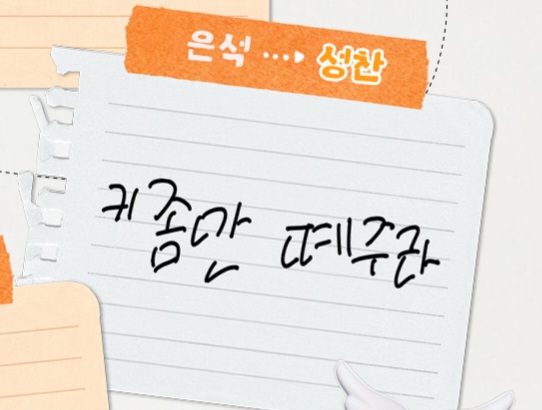 은석 ····▸ 성찬
키좀만 떼주라